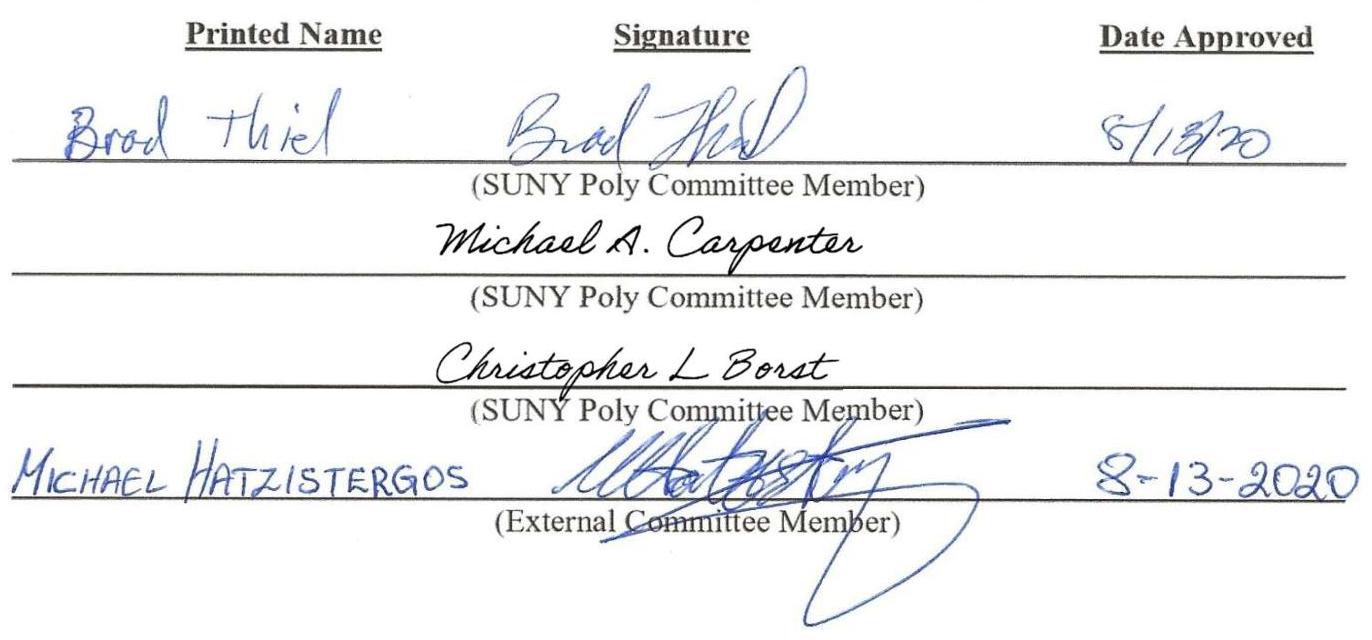 Printed Name Signature Date Approved
Brad Thiel Brad Thiel 8/13/20
(SUNY Poly Committee Member)
Michael A. Carpenter
(SUNY Poly Committee Member)
Christopher L Borst
(SUNY Poly Committee Member)
MICHAEL HATZISTERGOS 8-13-2020
(External Committee Member)